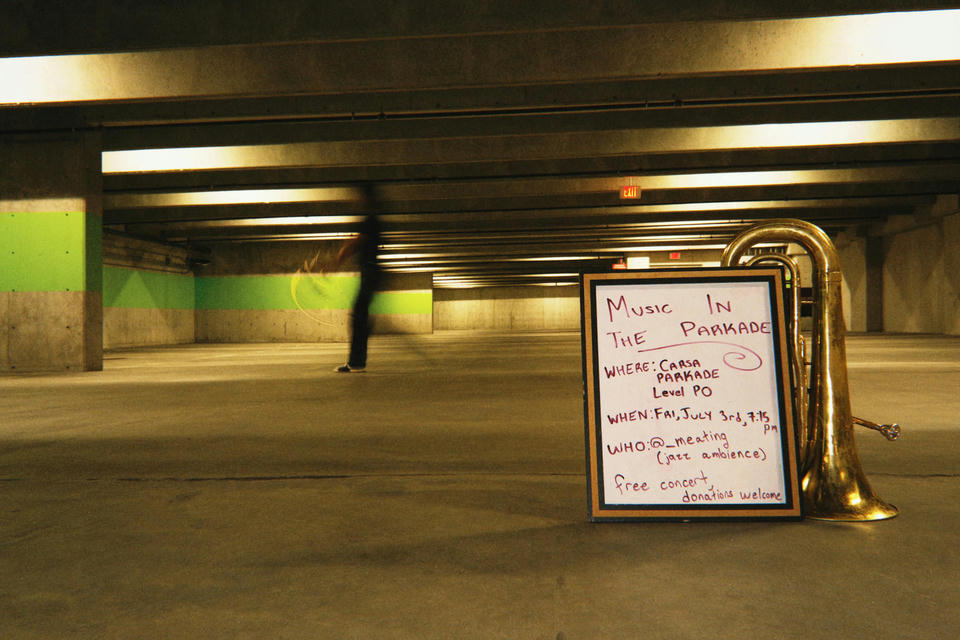 EXIT
MUSIC IN
THE PARKADE
WHERE: CARSA
PARKADE
Level PO
WHEN: FRI, JULY 3rd, 7:15
pm
WHO: @_meating
(jazz ambience)
free concert,
donations welcome